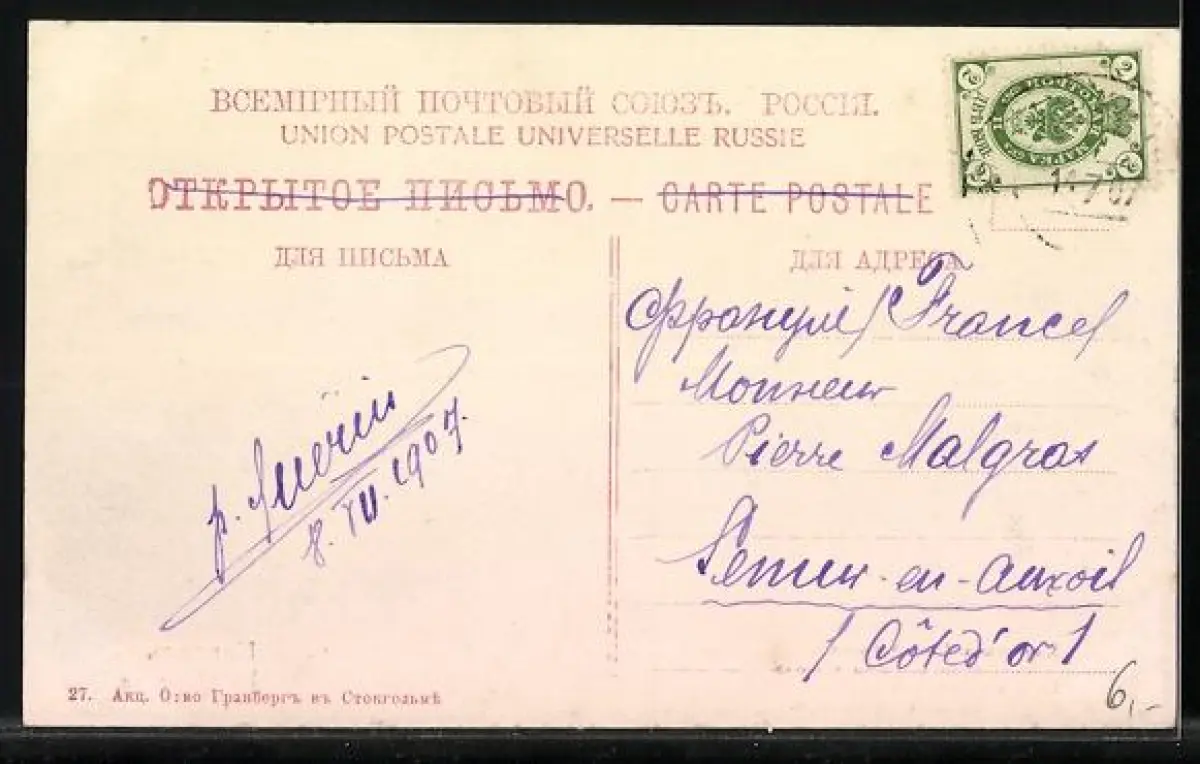 ВСЕМІРНЫЙ ПОЧТОВЫЙ СОЮЗЪ. РОССІЯ.
UNION POSTALE UNIVERSELLE RUSSIE
ОТКРЫТОЕ ПИСЬМО. — CARTE POSTALE
ДЛЯ ПИСЬМА
ДЛЯ АДРЕСА
Франція / France /
Monsieur
Pierre Malgras
Semur-en-Auxois
/ Côte d'or /
p.
8. VII. 1907.
27. Акц. О:во Гранбергъ въ Стокгольмѣ
6,-
2
2
2
2
ПОЧТОВАЯ МАРКА